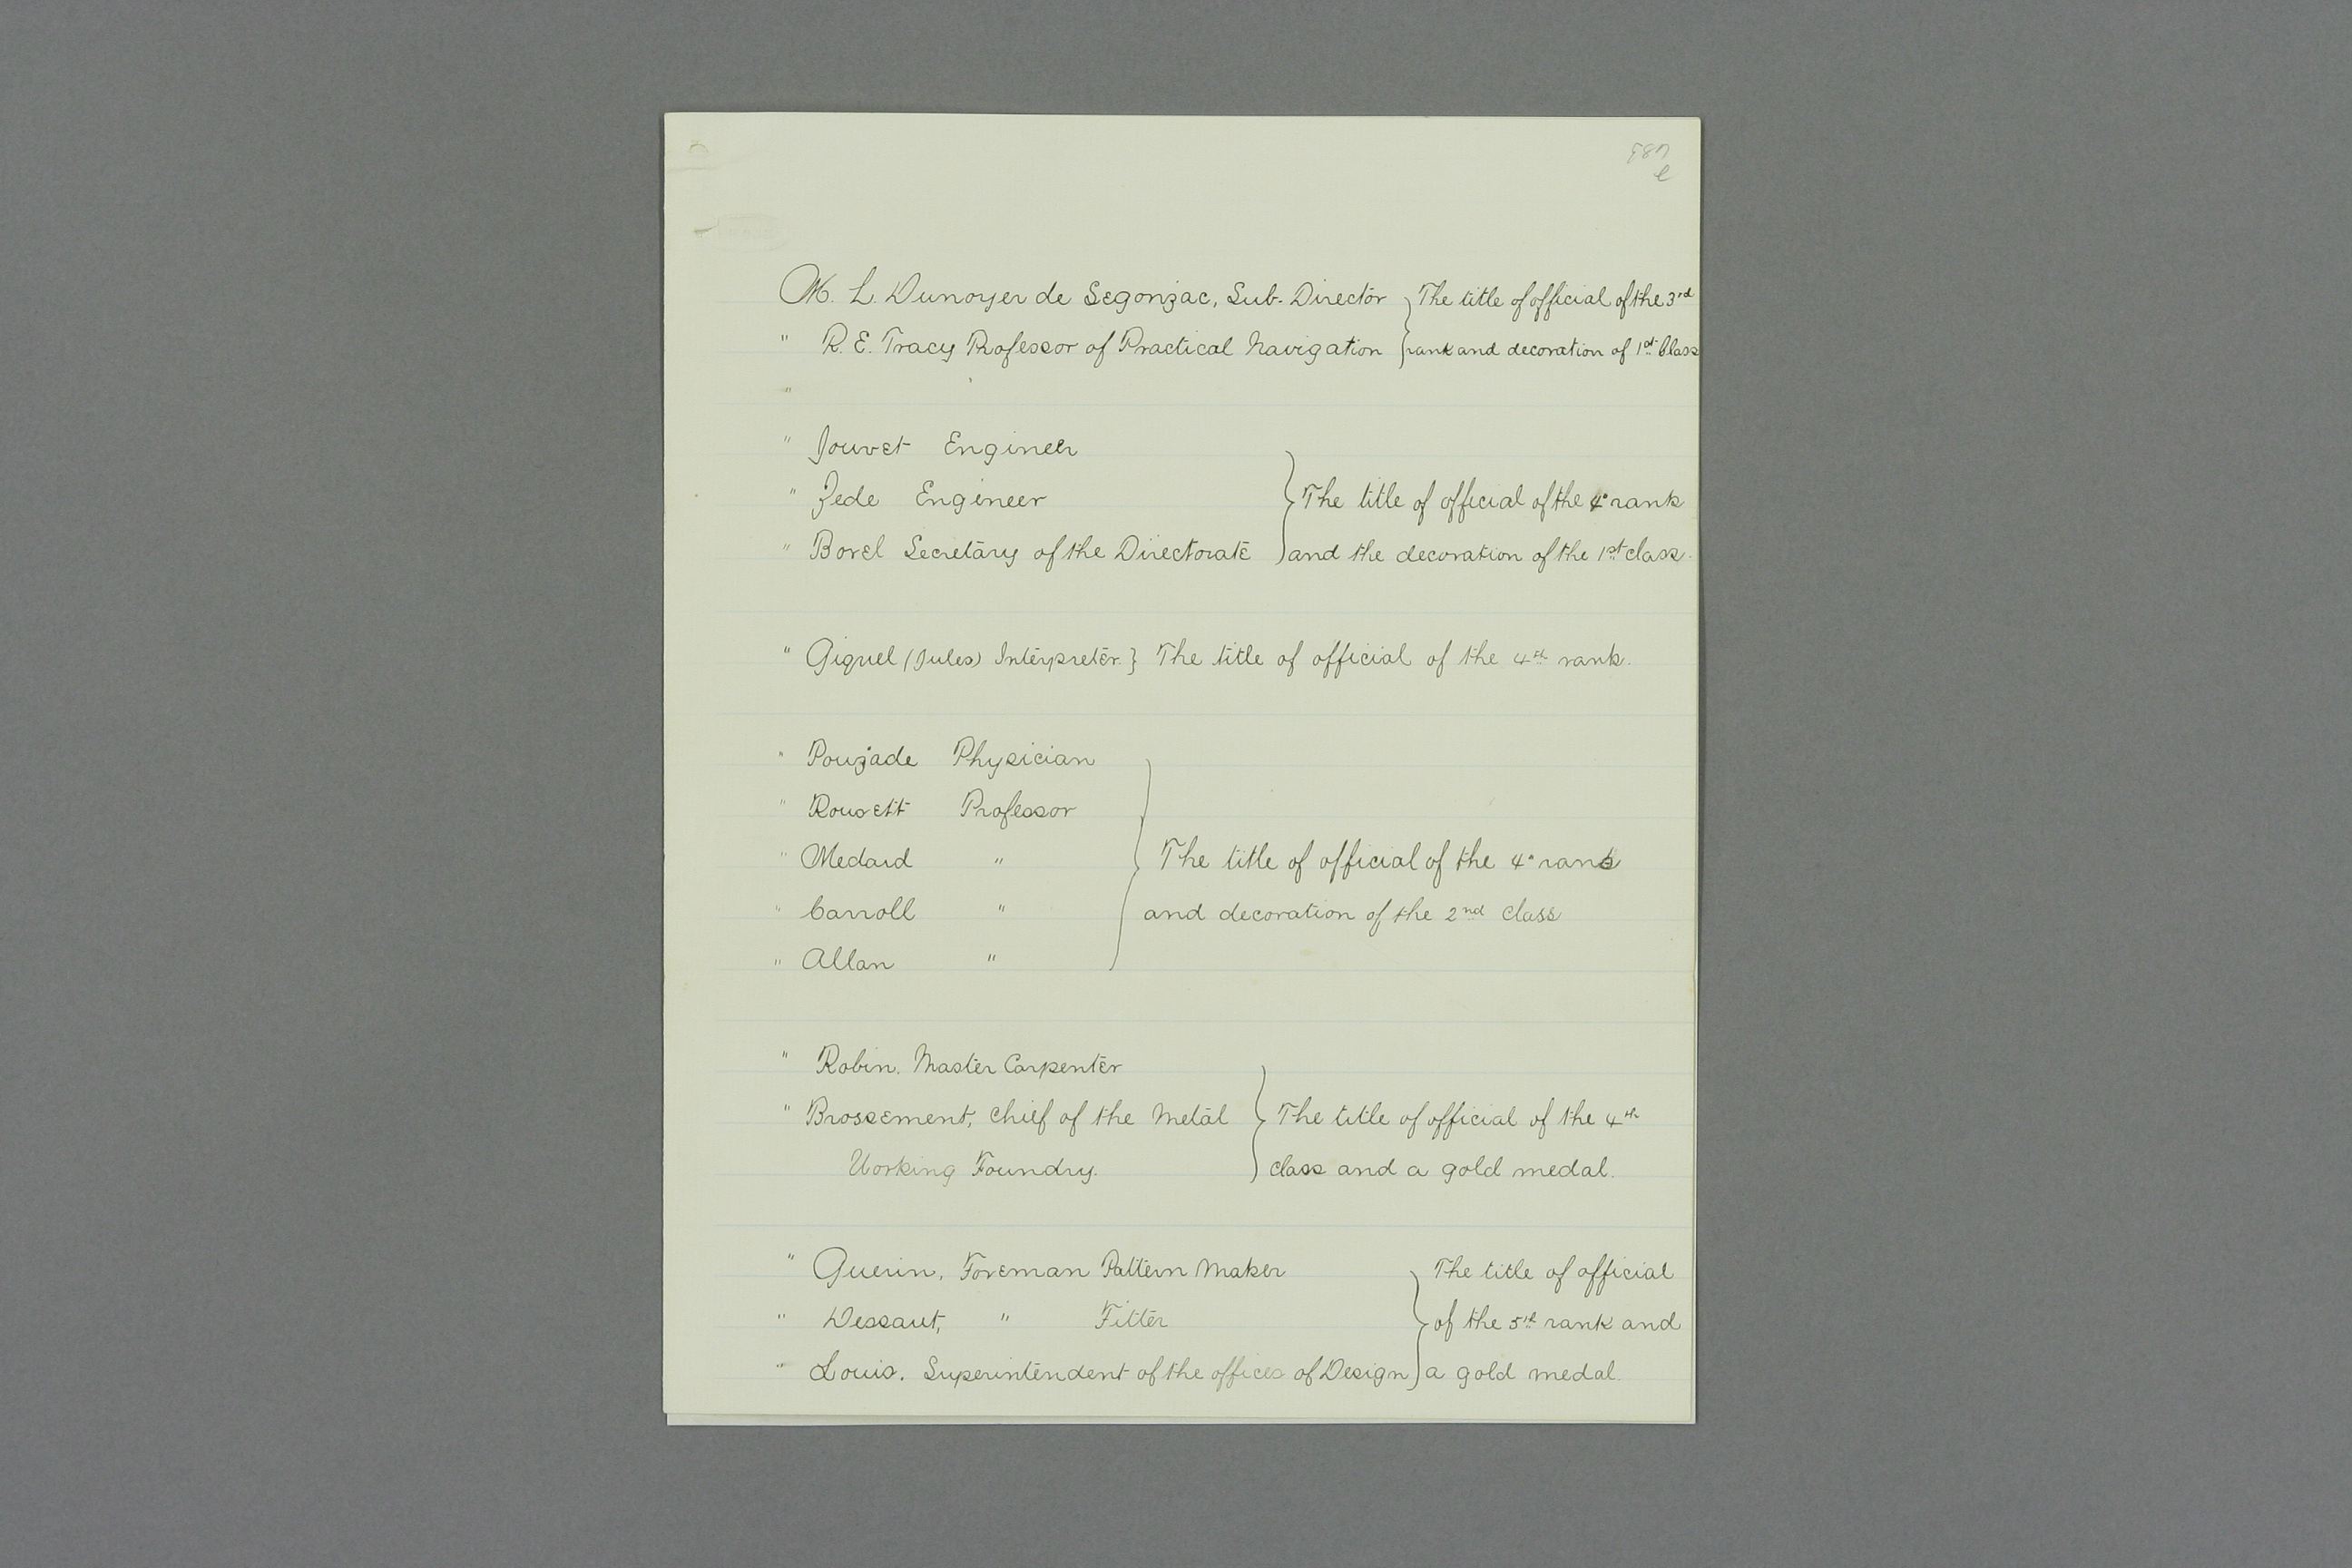 987
e
M. L. Dunoyer de Segonzac, Sub-Director } The title of official of the 3rd
" R. E. Tracy Professor of Practical Navigation } rank and decoration of 1st Class
"
" Jouvet Engineer
" Zede Engineer } The title of official of the 4° rank
" Borel Secretary of the Directorate } and the decoration of the 1st class.
" Giquel (Jules) Interpreter. } The title of official of the 4th rank.
" Poujade Physician
" Rousett Professor
" Medard " } The title of official of the 4° rank
" Carroll " and decoration of the 2nd class
" Allan "
" Robin. Master Carpenter
" Brossement, Chief of the Metal } The title of official of the 4th
Working Foundry. class and a gold medal.
" Guerin, Foreman Pattern Maker The title of official
" Dessaut, " Fitter } of the 5th rank and
" Louis. Superintendent of the offices of Design a gold medal.